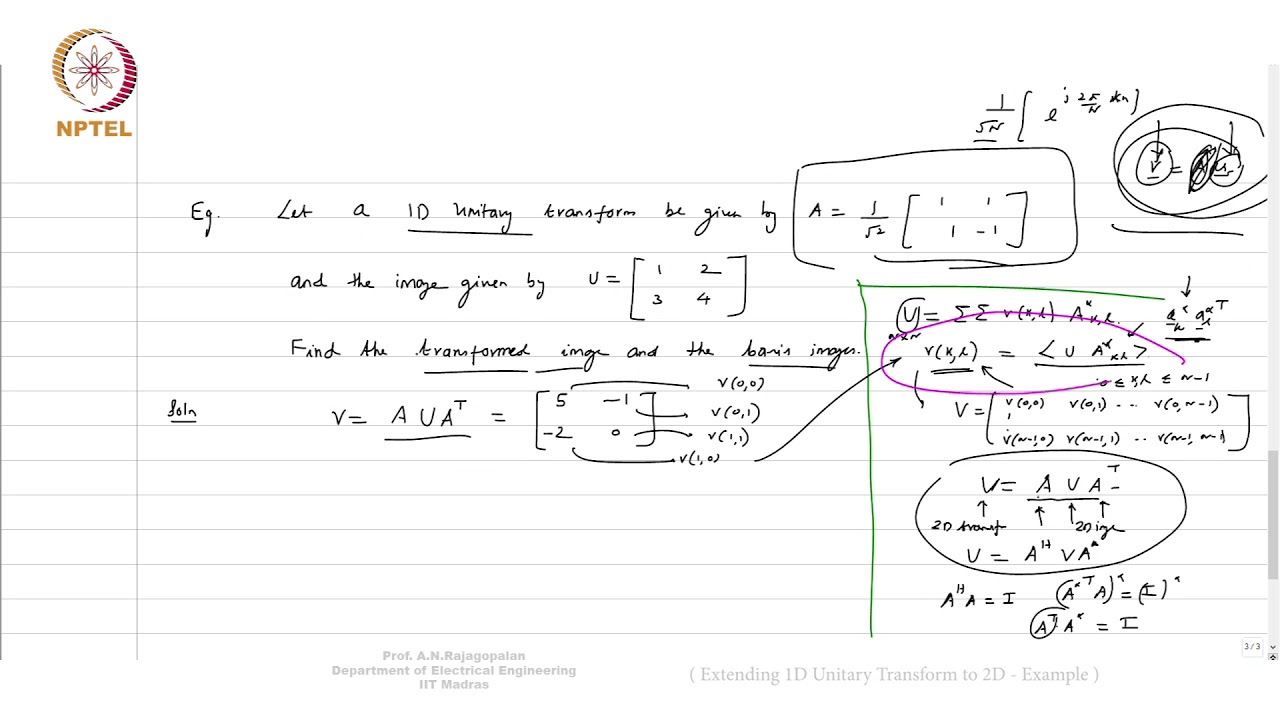 NPTEL
1/√N [ e^{j 2π/N kn} ]
Eg. Let a 1D unitary transform be given by A = 1/√2 [ 1 1
1 -1 ]
and the image given by U = [ 1 2
3 4 ]
Find the transformed image and the basis images.
Soln V = A U A^T = [ 5 -1
-2 0 ]
v(0,0)
v(0,1)
v(1,1)
v(1,0)
U = ΣΣ v(k,l) A*_{k,l} a*_k a*_l^T
N×N
v(k,l) = < U A*_{kl} >
0 ≤ k,l ≤ N-1
V = [ v(0,0) v(0,1) .. v(0,N-1)
v(N-1,0) v(N-1,1) .. v(N-1,N-1) ]
V = A U A^T
2D transf 2D imge
U = A^H V A*
A^H A = I (A*^T A)* = (I)*
A^T A* = I
3/3
Prof. A.N.Rajagopalan
Department of Electrical Engineering
IIT Madras
( Extending 1D Unitary Transform to 2D - Example )